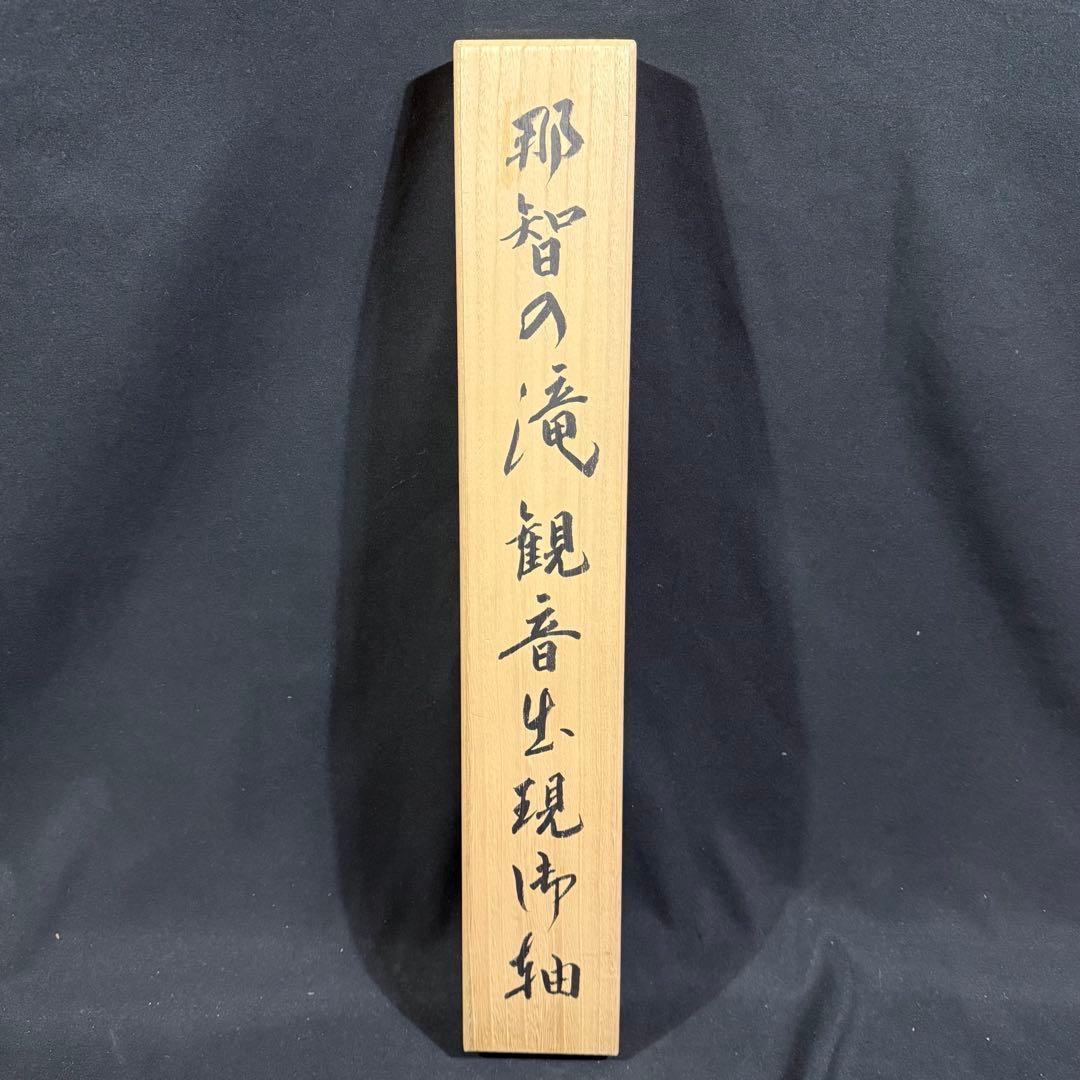 那智の滝観音出現御軸